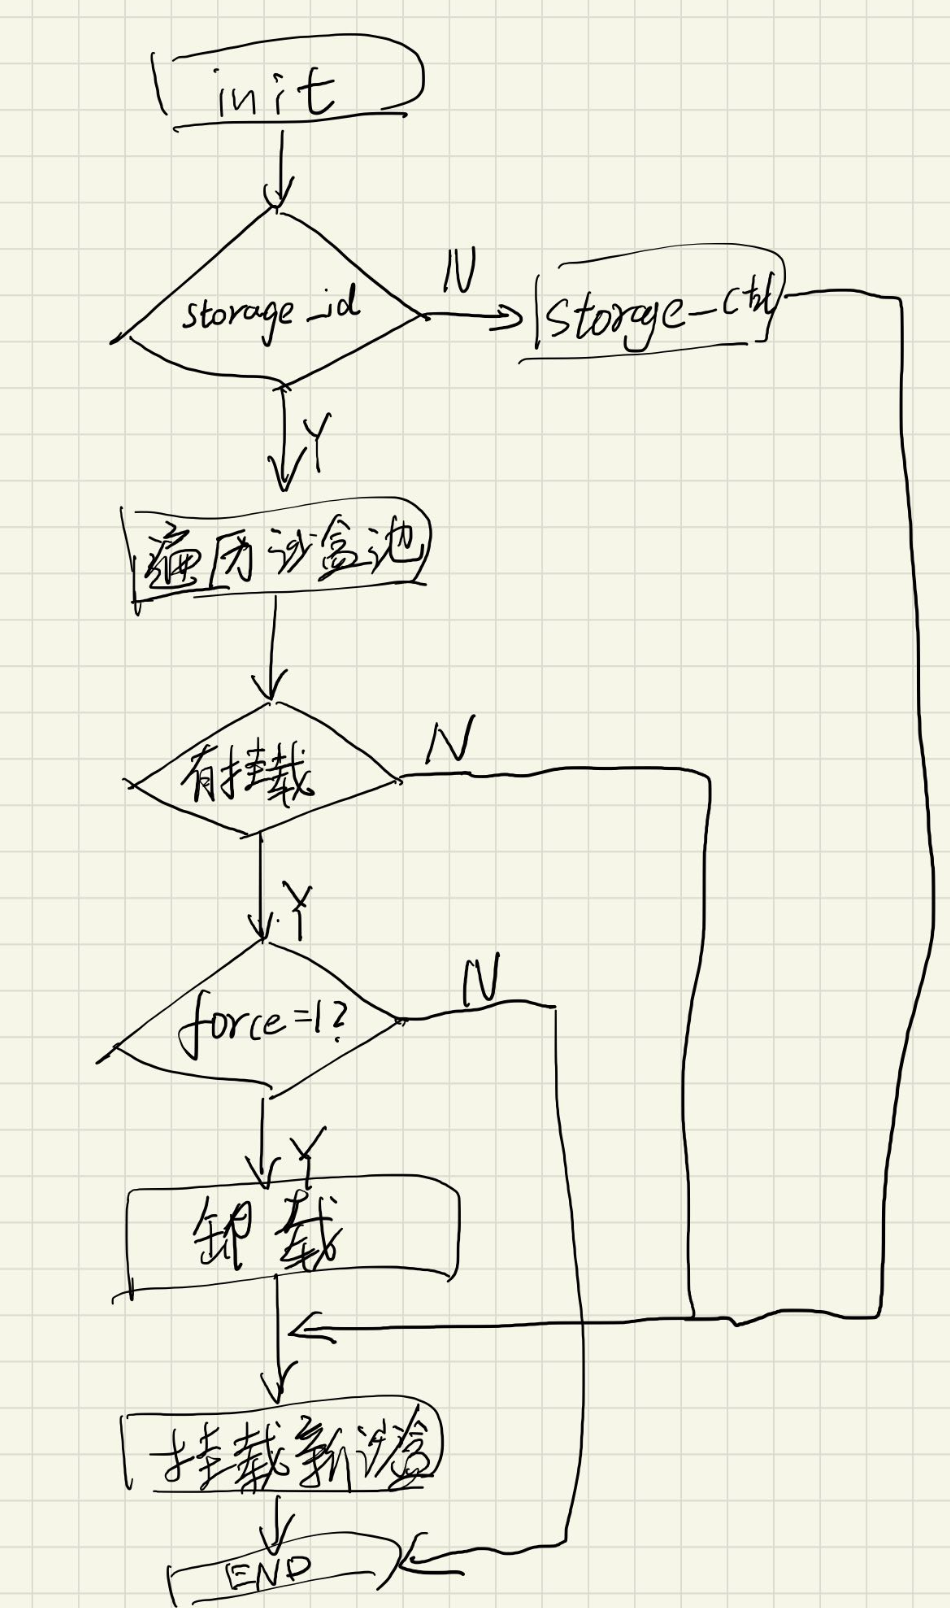 init
storage_id
N
storage_ctrl
Y
遍历沙盒池
有挂载
N
Y
force=1?
N
Y
卸载
挂载新沙盒
END